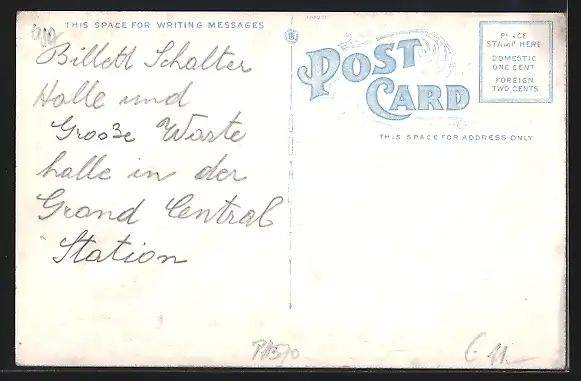 THIS SPACE FOR WRITING MESSAGES
Billett Schalter
Halle und
Grooße Warte
halle in der
Grand Central
Station
POST
CARD
THIS SPACE FOR ADDRESS ONLY
PLACE
STAMP HERE
DOMESTIC
ONE CENT
FOREIGN
TWO CENTS